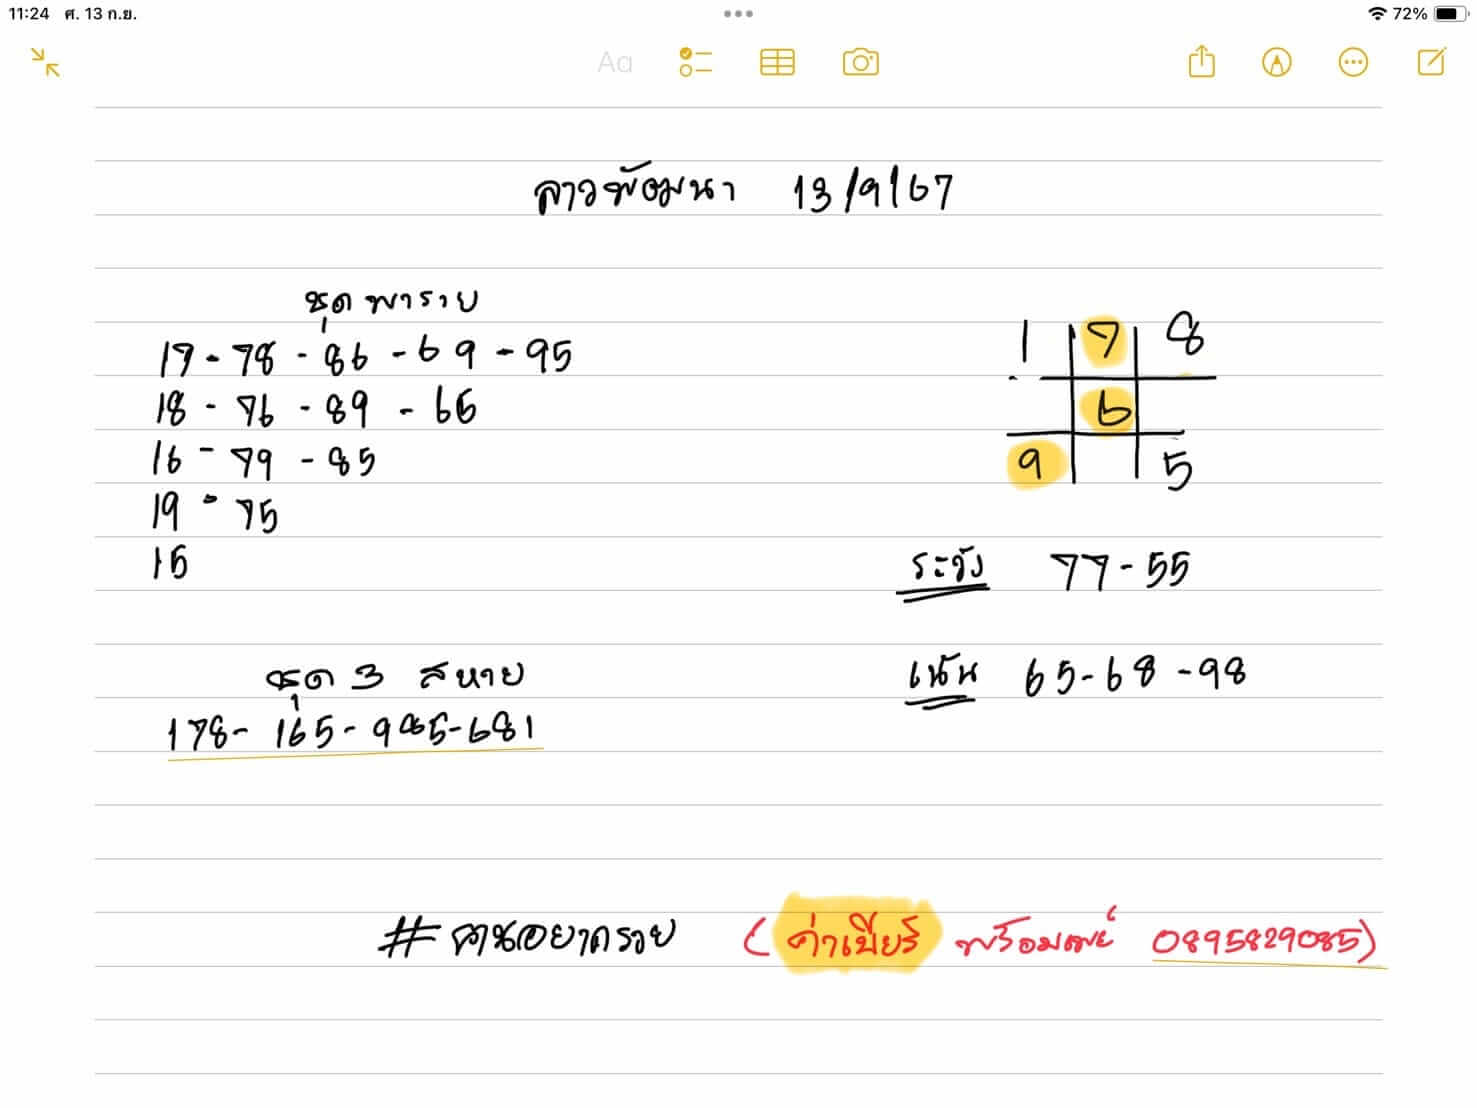 11:24 ศ. 13 ก.ย. 72%
Aa
ลาวพัฒนา 13/9/67
ชุด พารวย
17 - 78 - 86 - 69 - 95
18 - 76 - 89 - 65
16 - 79 - 85
19 - 75
15
1 7 8
6
9 5
ระวัง 77 - 55
เน้น 65 - 68 - 98
ชุด 3 สหาย
178 - 165 - 985 - 681
#คนอยากรวย (ค่าเบียร์ พร้อมเพย์ 0895829085)